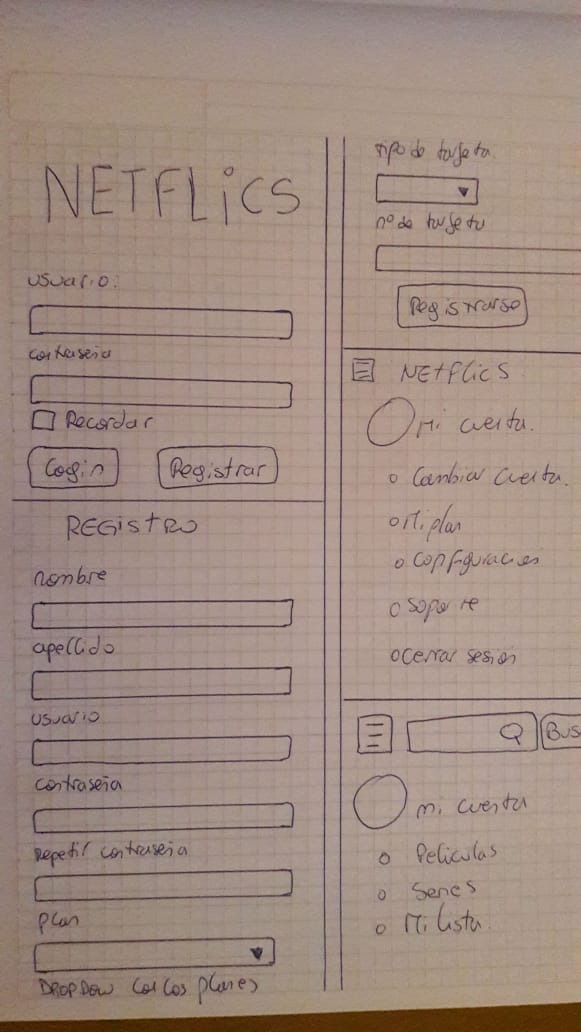 NETFLiCS
usuario:
contraseña
Recordar
Login
Registrar
REGISTRO
nombre
apellido
usuario
contraseña
Repetir contraseña
plan
DROPDOW con los planes
Tipo de tarjeta
nº de tarjeta
Registrarse
NETFLICS
Mi cuenta.
Cambiar cuenta.
Mi plan
Configuracion
Soporte
cerrar sesion
Bus
mi cuenta
Peliculas
Series
Mi lista.